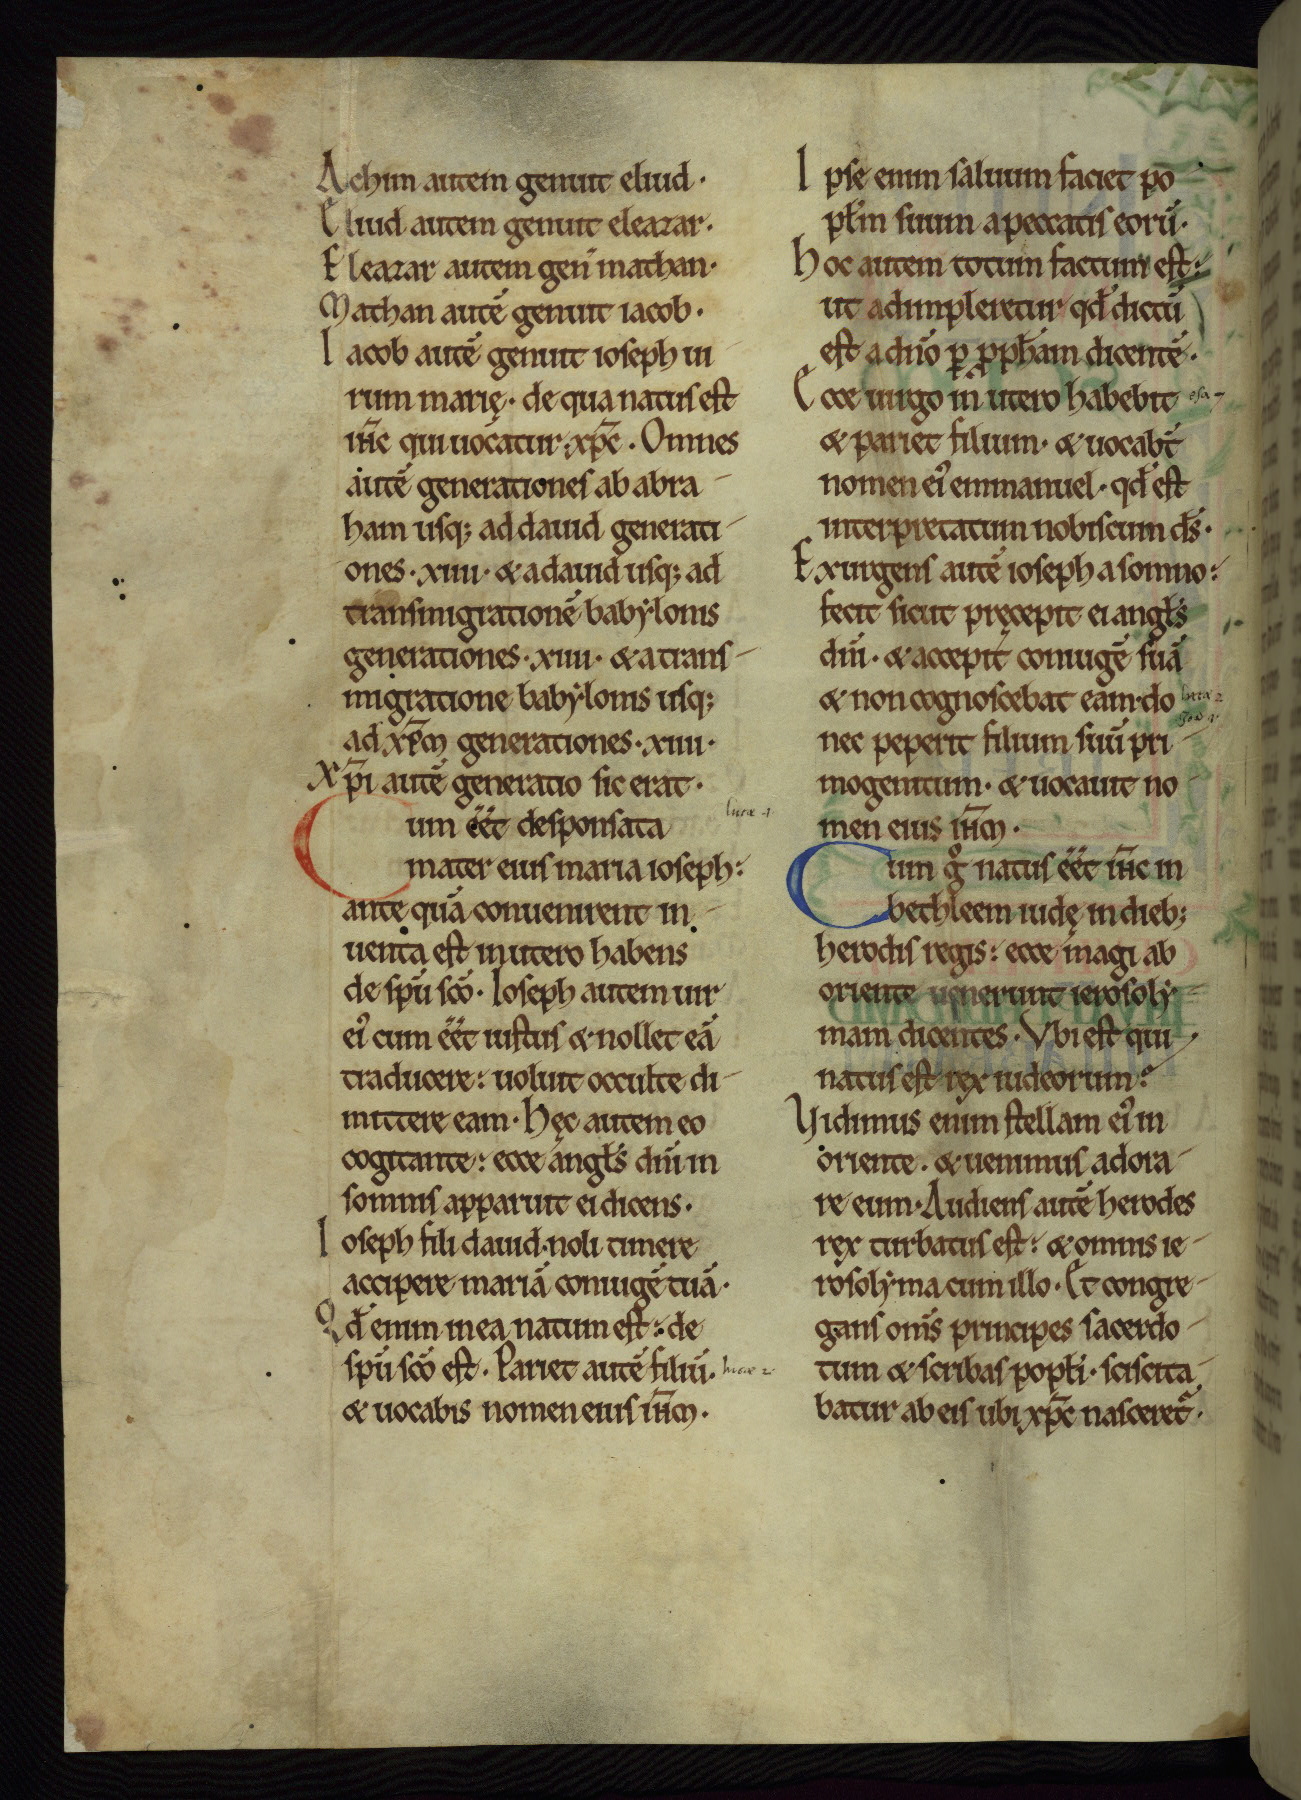 Achim autem genuit eliud·
Eliud autem genuit eleazar·
Eleazar autem gen̄ mathan·
Mathan autē genuit iacob·
Iacob autē genuit ioseph ui
rum marię· de qua natus est
ih̄c qui uocatur xp̄c. Omnes
autē generationes ab abra-
ham usq; ad dauid generati-
ones· xiiii· & a dauid usq; ad
transmigrationē babylonis
generationes· xiiii· & a trans-
migratione babylonis usq;
ad xp̄m generationes· xiiii·
Xp̄i autē generatio sic erat·
Cum eēt desponsata
mater eius maria ioseph:
ante quā conuenirent in-
uenta est in utero habens
de sp̄u sc̄o· Ioseph autem uir
ei' cum eēt iustus & nollet eā
traducere: uoluit occulte di-
mittere eam· Hęc autem eo
cogitante: ecce angl̄s dn̄i in
somnis apparuit ei dicens·
Ioseph fili dauid· noli timere
accipere mariā coniugē tuā·
Qd̄ enim in ea natum est: de
sp̄u sc̄o est· Pariet autē filiū·
& uocabis nomen eius ih̄m·
lucæ 1
lucæ 2
Ipse enim saluum faciet po
pl̄m suum a peccatis eorū·
Hoc autem totum factum est:
ut adimpleretur qd̄ dictū
est a dn̄o ꝑ ꝓph̄am dicentē·
Ecce uirgo in utero habebit
& pariet filium· & uocab̄t
nomen ei' emmanuel· qd̄ est
interpretatum nobiscum d̄s·
Exurgens autē ioseph a somno:
fecit sicut pręcepit ei angl̄s
dn̄i· & accepit coniugē suā
& non cognoscebat eam· do
nec peperit filium suū pri-
mogenitum· & uocauit no
men eius ih̄m·
Cum gͦ natus eēt ih̄c in
bethleem iudę in dieb;
herodis regis: ecce magi ab
oriente uenerunt ierosoly-
mam dicentes· Vbi est qui
natus est rex iudeorum?
Vidimus enim stellam ei' in
oriente· & uenimus adora-
re eum· Audiens autē herodes
rex turbatus est: & omnis ie-
rosolyma cum illo· Et congre-
gans om̄s principes sacerdo-
tum & scribas popl̄i· sciscita
batur ab eis ubi xp̄c nasceret̃·
esa 7
lucæ 2